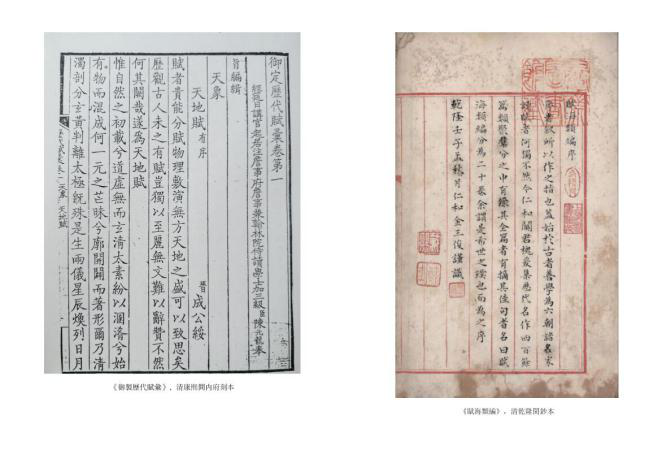 御定歷代賦彙卷第一
經筵日講官起居注詹事府詹事兼翰林院侍讀學士加三級臣陳元龍奉
旨編輯
天象
天地賦 有序
晉 成公綏
賦者貴能分賦物理敷演無方天地之盛可以致思矣
歷觀古人未之有賦豈獨以至麗無文難以辭贊不然
何其闕哉遂為天地賦
惟自然之初載兮道虛無而玄清太素紛以溷淆兮始
有物而混成何一元之芒昧兮廓開闢而著形爾乃清
濁剖分玄黃判離太極既殊是生兩儀星辰煥列日月
《御製歷代賦彙》，清康熙間內府刻本
賦海類編序
序者敘所以作之指也蓋始於古者善學為六朝諸名家
海類編分為二十卷余謂是希世之璞也而為之序
乾隆壬子孟秋月仁和金玉俊謹識
《賦海類編》，清乾隆間鈔本